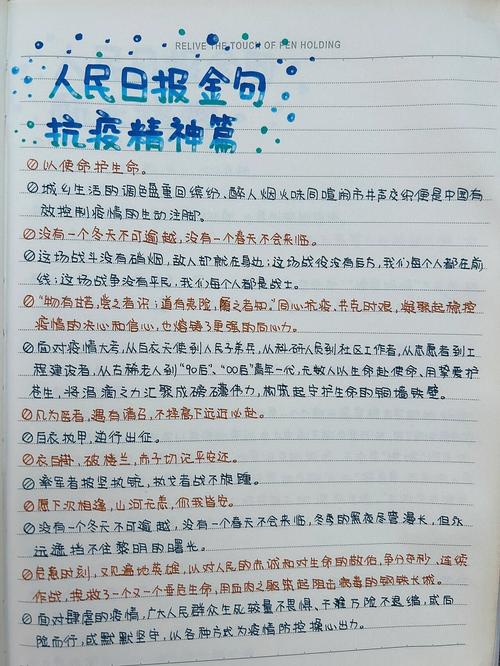 RELIVE THE TOUCH OF PEN HOLDING
人民日报金句
抗疫精神篇
⊘以使命护生命。
⊘城乡生活的调色盘重回缤纷,醉人烟火味同喧闹市井声交织便是中国有
效控制疫情的生动注脚。
⊘没有一个冬天不可逾越,没有一个春天不会来临。
⊘这场战斗没有硝烟,敌人却就在身边;这场战役没有后方,我们每个人都在前
线;这场战争没有平民,我们每个人都是战士。
⊘“物有甘苦,尝之者识;道有夷险,履之者知。”同心抗疫、共克时艰,凝聚起稳控
疫情的决心和信心,也熔铸了更强的同心力。
⊘面对疫情大考,从白衣天使到人民子弟兵,从科研人员到社区工作者,从志愿者到工
程建设者,从古稀老人到“90后”、“00后”青年一代,无数人以生命赴使命、用挚爱护
苍生,将涓滴之力汇聚成磅礴伟力,构筑起守护生命的铜墙铁壁。
⊘凡为医者,遇有请召,不择高下远近必赴。
⊘白衣执甲,逆行出征。
⊘衣自掛,破楼兰,赤子切记平安还。
⊘牵牢者披坚执锐,执戈者战不旋踵。
⊘愿下次相逢,山河无恙,你我皆安。
⊘没有一个冬天不可逾越,没有一个春天不会来临,冬季的黑夜尽管漫长,但永
远遮挡不住黎明的曙光。
⊘危急时刻,又见遍地英雄,以对人民的赤诚和对生命的敬佑,争分夺秒、连续
作战,挽救了一个又一个垂危生命,用血肉之躯筑起阻击病毒的钢铁长城。
⊘面对肆虐的疫情,广大人民群众生死较量不畏惧、千难万险不退缩,或临
险而行,或默默坚守,以各种方式为疫情防控操心出力。